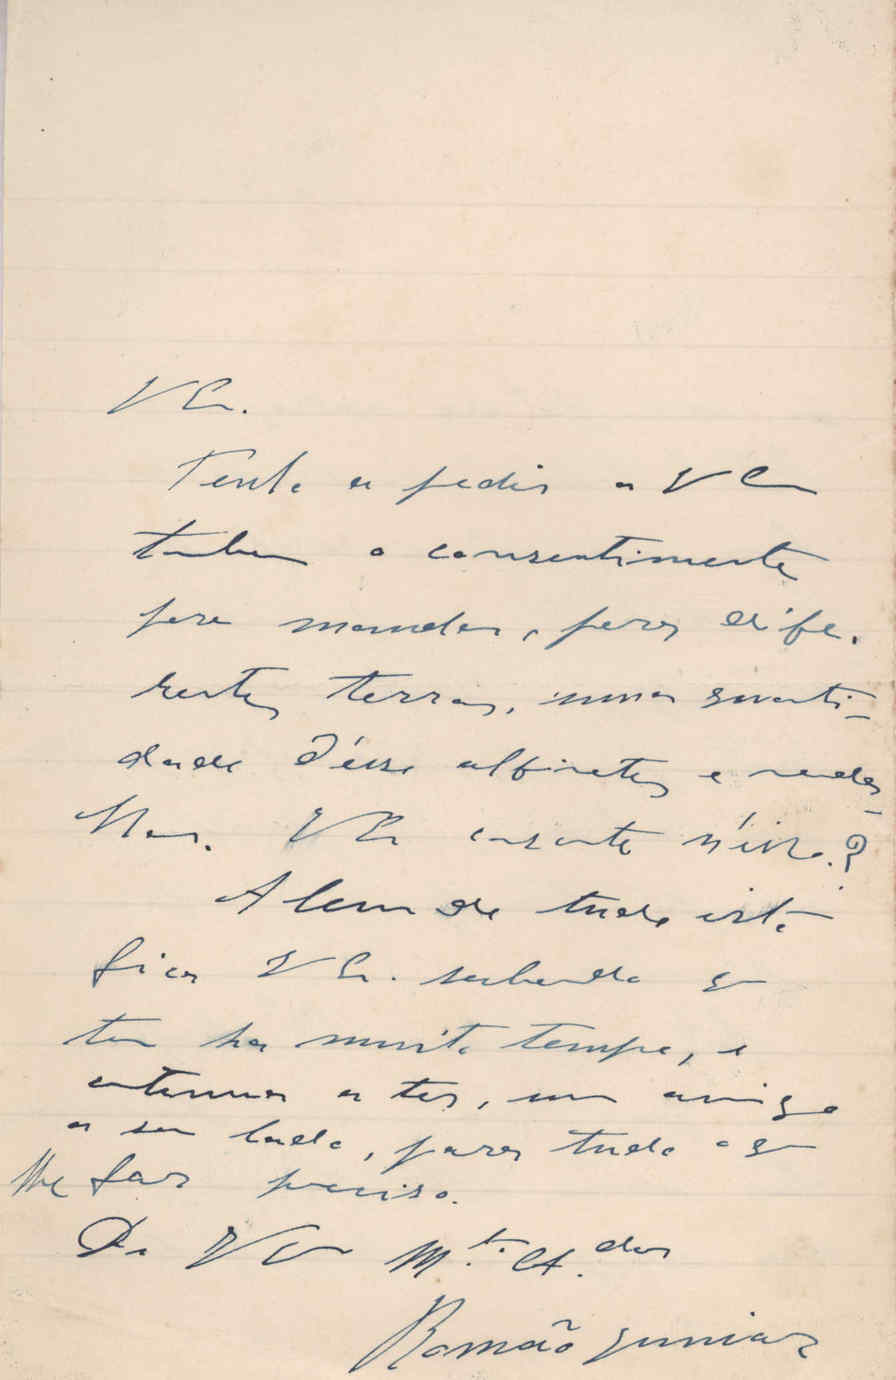 V Ex.
Tenho a pedir a V Ex
tambem o consentimento
para mandar, para dife-
rentes terras, uma quanti-
dade d'esses alfinetes e meda-
lhas. V Ex consente n'isso?
Alem de tudo isto
fica V Ex. sabendo q
tem ha muito tempo, e
continua a ter, um amigo
a seu lado, para tudo o q
lhe for preciso.
De V Ex M.to A.dor
Romão Junior